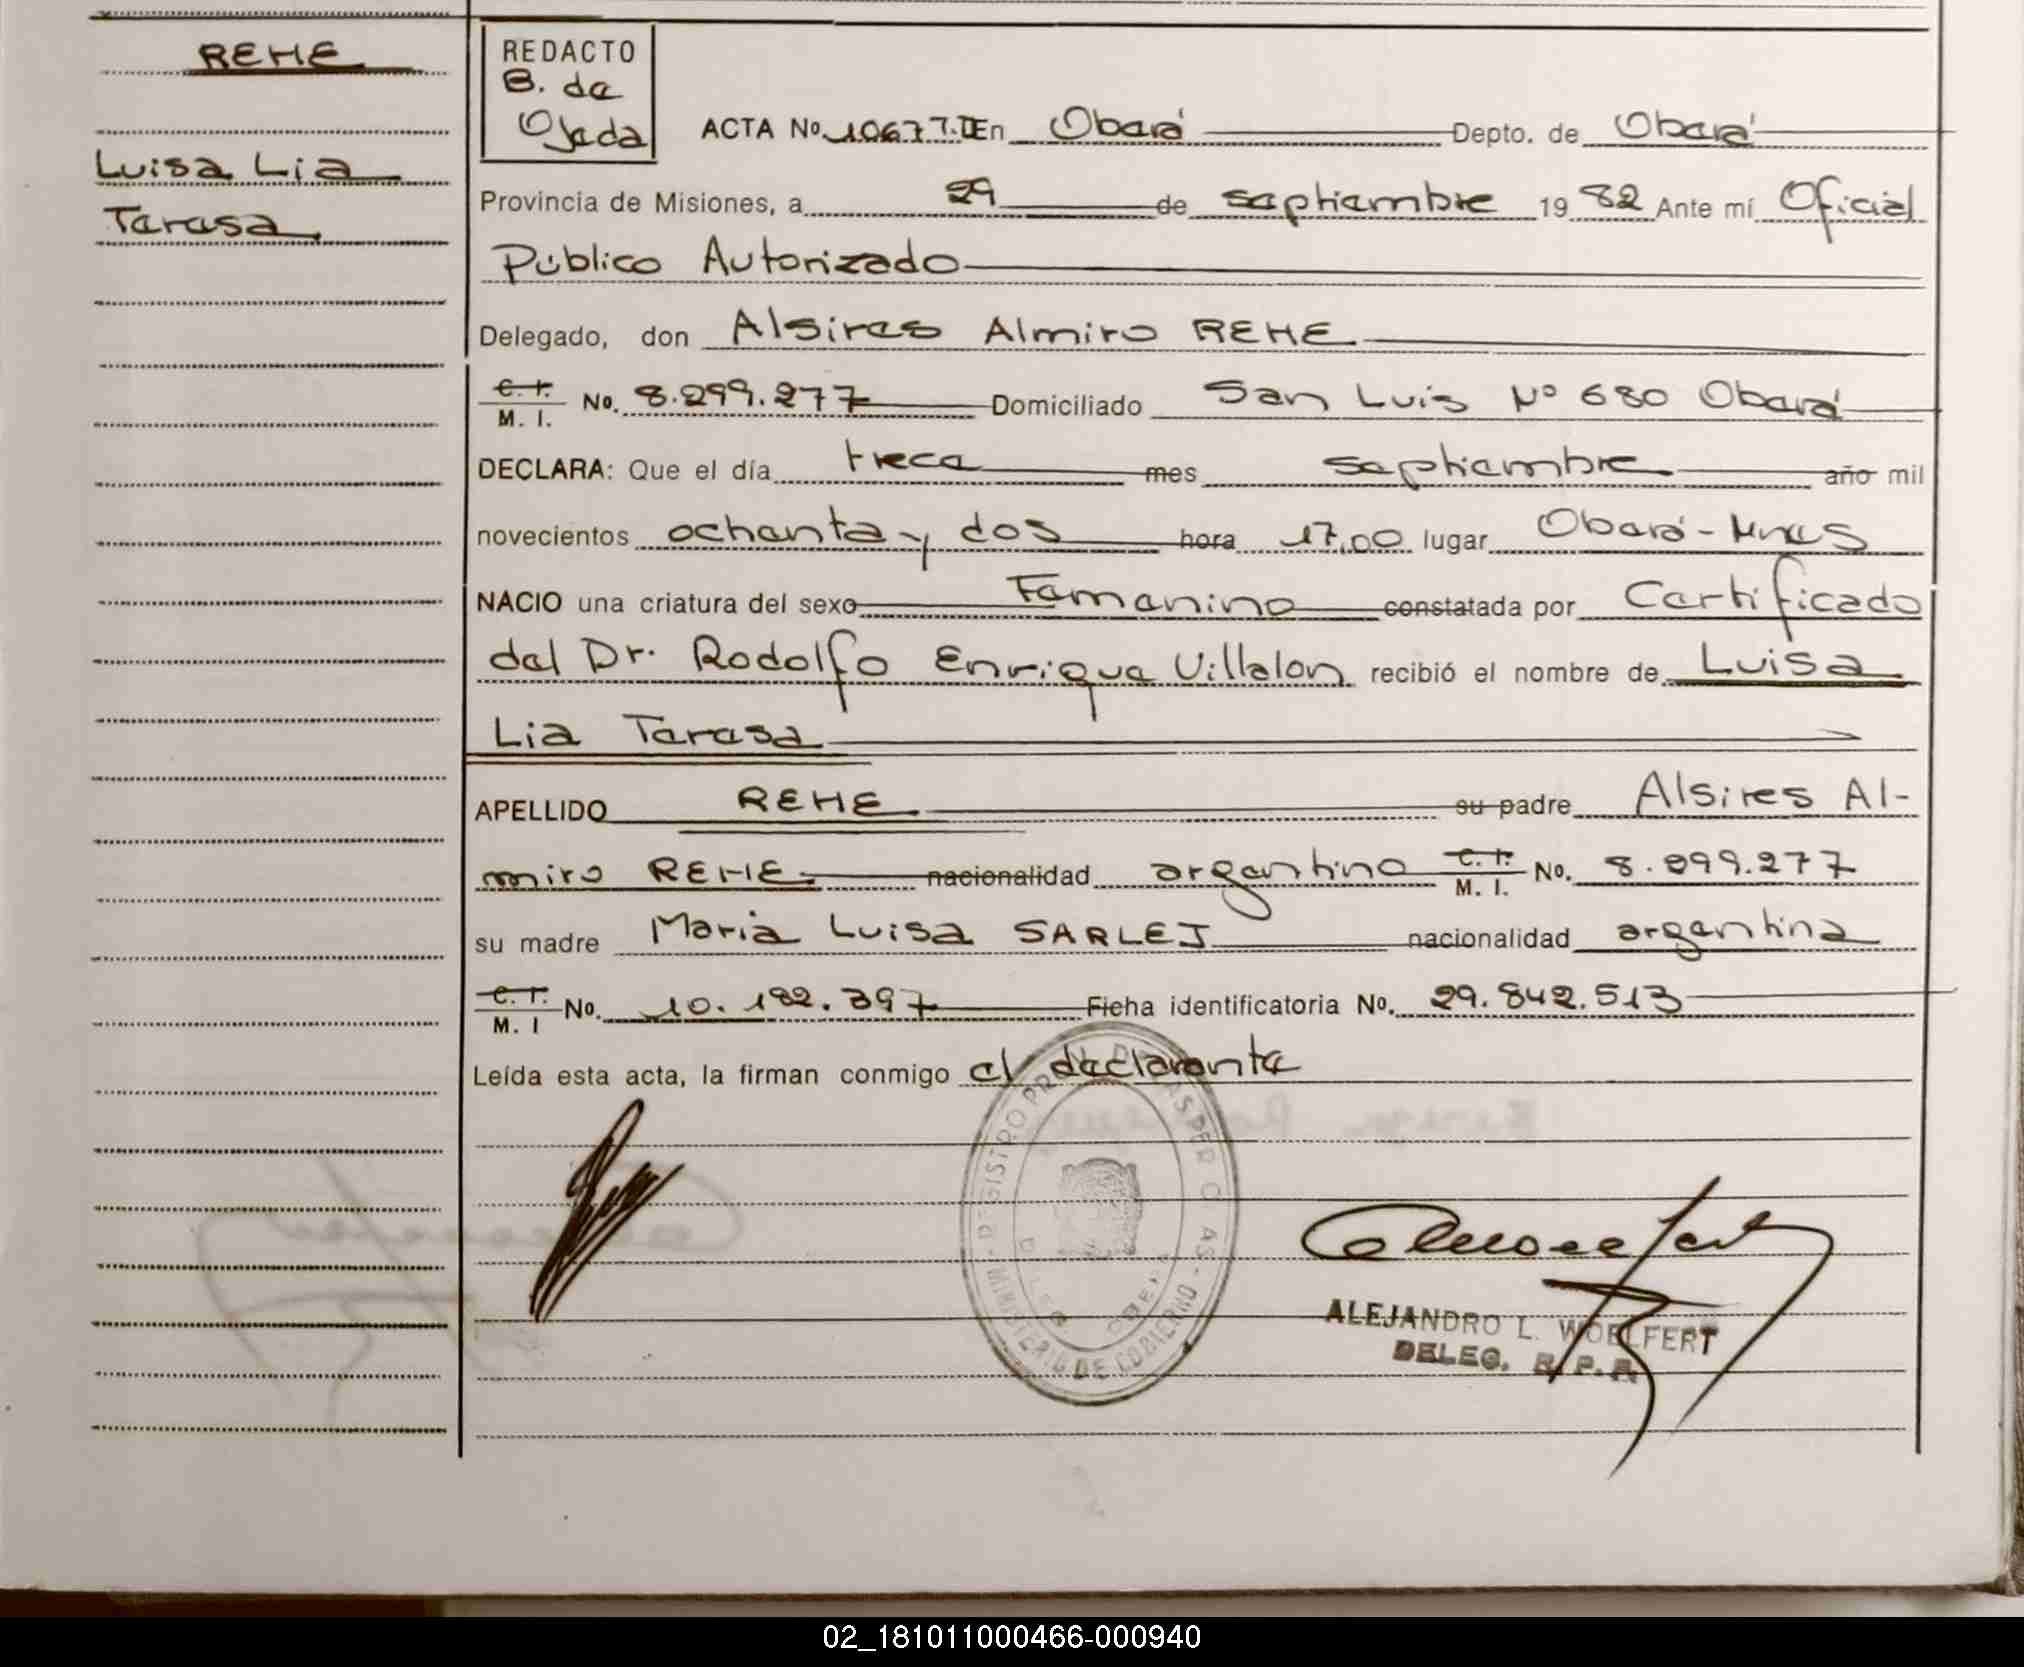 REHE
Luisa Lia
Teresa
REDACTO
B. de
Ojeda
ACTA No. 1067 T.II En Oberá Depto. de Oberá
Provincia de Misiones, a 29 de septiembre 1982 Ante mí Oficial
Público Autorizado
Delegado, don Alsires Almiro REHE
C. I.
M. I. No. 8.299.277 Domiciliado San Luis Nº 680 Oberá
DECLARA: Que el día trece mes septiembre año mil
novecientos ochenta y dos hora 17,00 lugar Oberá - Mnes
NACIO una criatura del sexo Femenino constatada por Certificado
del Dr. Rodolfo Enrique Villalon recibió el nombre de Luisa
Lia Teresa
APELLIDO REHE su padre Alsires Al-
miro REHE nacionalidad argentino C. I. M. I. No. 8.299.277
su madre Maria Luisa SARLEJ nacionalidad argentina
C. I.
M. I No. 10.182.397 Ficha identificatoria No. 29.842.513
Leída esta acta, la firman conmigo el declarante
MINISTERIO DE GOBIERNO
ALEJANDRO L. WOELFERT
DELEG. R. P. P.
02_181011000466-000940